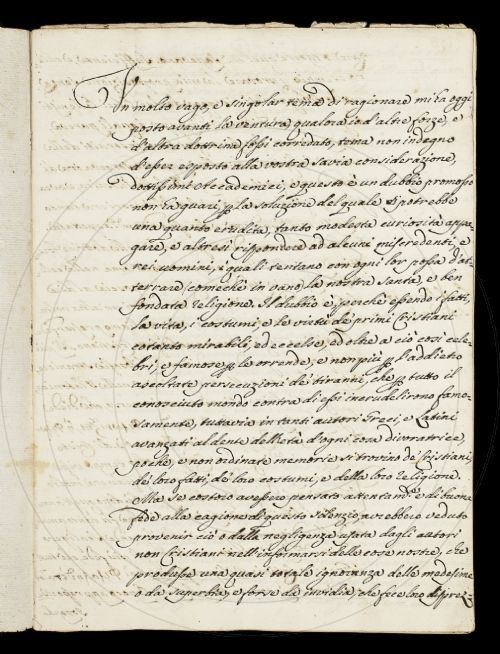 Un molto vago, e singolar tema di ragionare mi ha oggi
posto avanti la ventura, qualora io d'altre forze, e
d'altra dottrina fossi corredato, tema non indegno
d'esser esposto alla vostra savia considerazione,
dottissimi Accademici, e questo è un dubbio promosso
non ha guari, p la soluzione del quale si potrebbe
una quanto erudita, tanto modesta curiosità appa-
gare, e altresì rispondere ad alcuni miscredenti, e
rei uomini, i quali tentano con ogni lor possa d'at-
terrare (comechè in vano) la nostra santa, e ben
fondata religione. Il dubbio è, perchè essendo i fatti,
la vita, i costumi, e le virtù de' primi Cristiani
cotanto mirabili, ed eccelse, ed oltre a ciò così cele-
bri, e famose p le orrende, e non più p l'addieto
ascoltate persecuzioni de' tiranni, che p tutto il
conosciuto mondo contra di essi incrudelirono fame-
licamente, tuttavia in tanti autori Greci, e Latini
avanzati al dente dell'età d'ogni cosa divoratrice,
poche, e non ordinate memorie si trovino de' Cristiani,
de' loro fatti, de' loro costumi, e della loro religione.
Ma se costoro avessero pensato attentam.e e di buona
fede alla cagione di questo silenzio, avrebbero veduto
provenir ciò o dalla negligenza usata dagli autori
non Cristiani nell'informarsi delle cose nostre, che
produsse una quasi totale ignoranza delle medesime
o da superbia, e forse da invidia, che fece loro disprez-